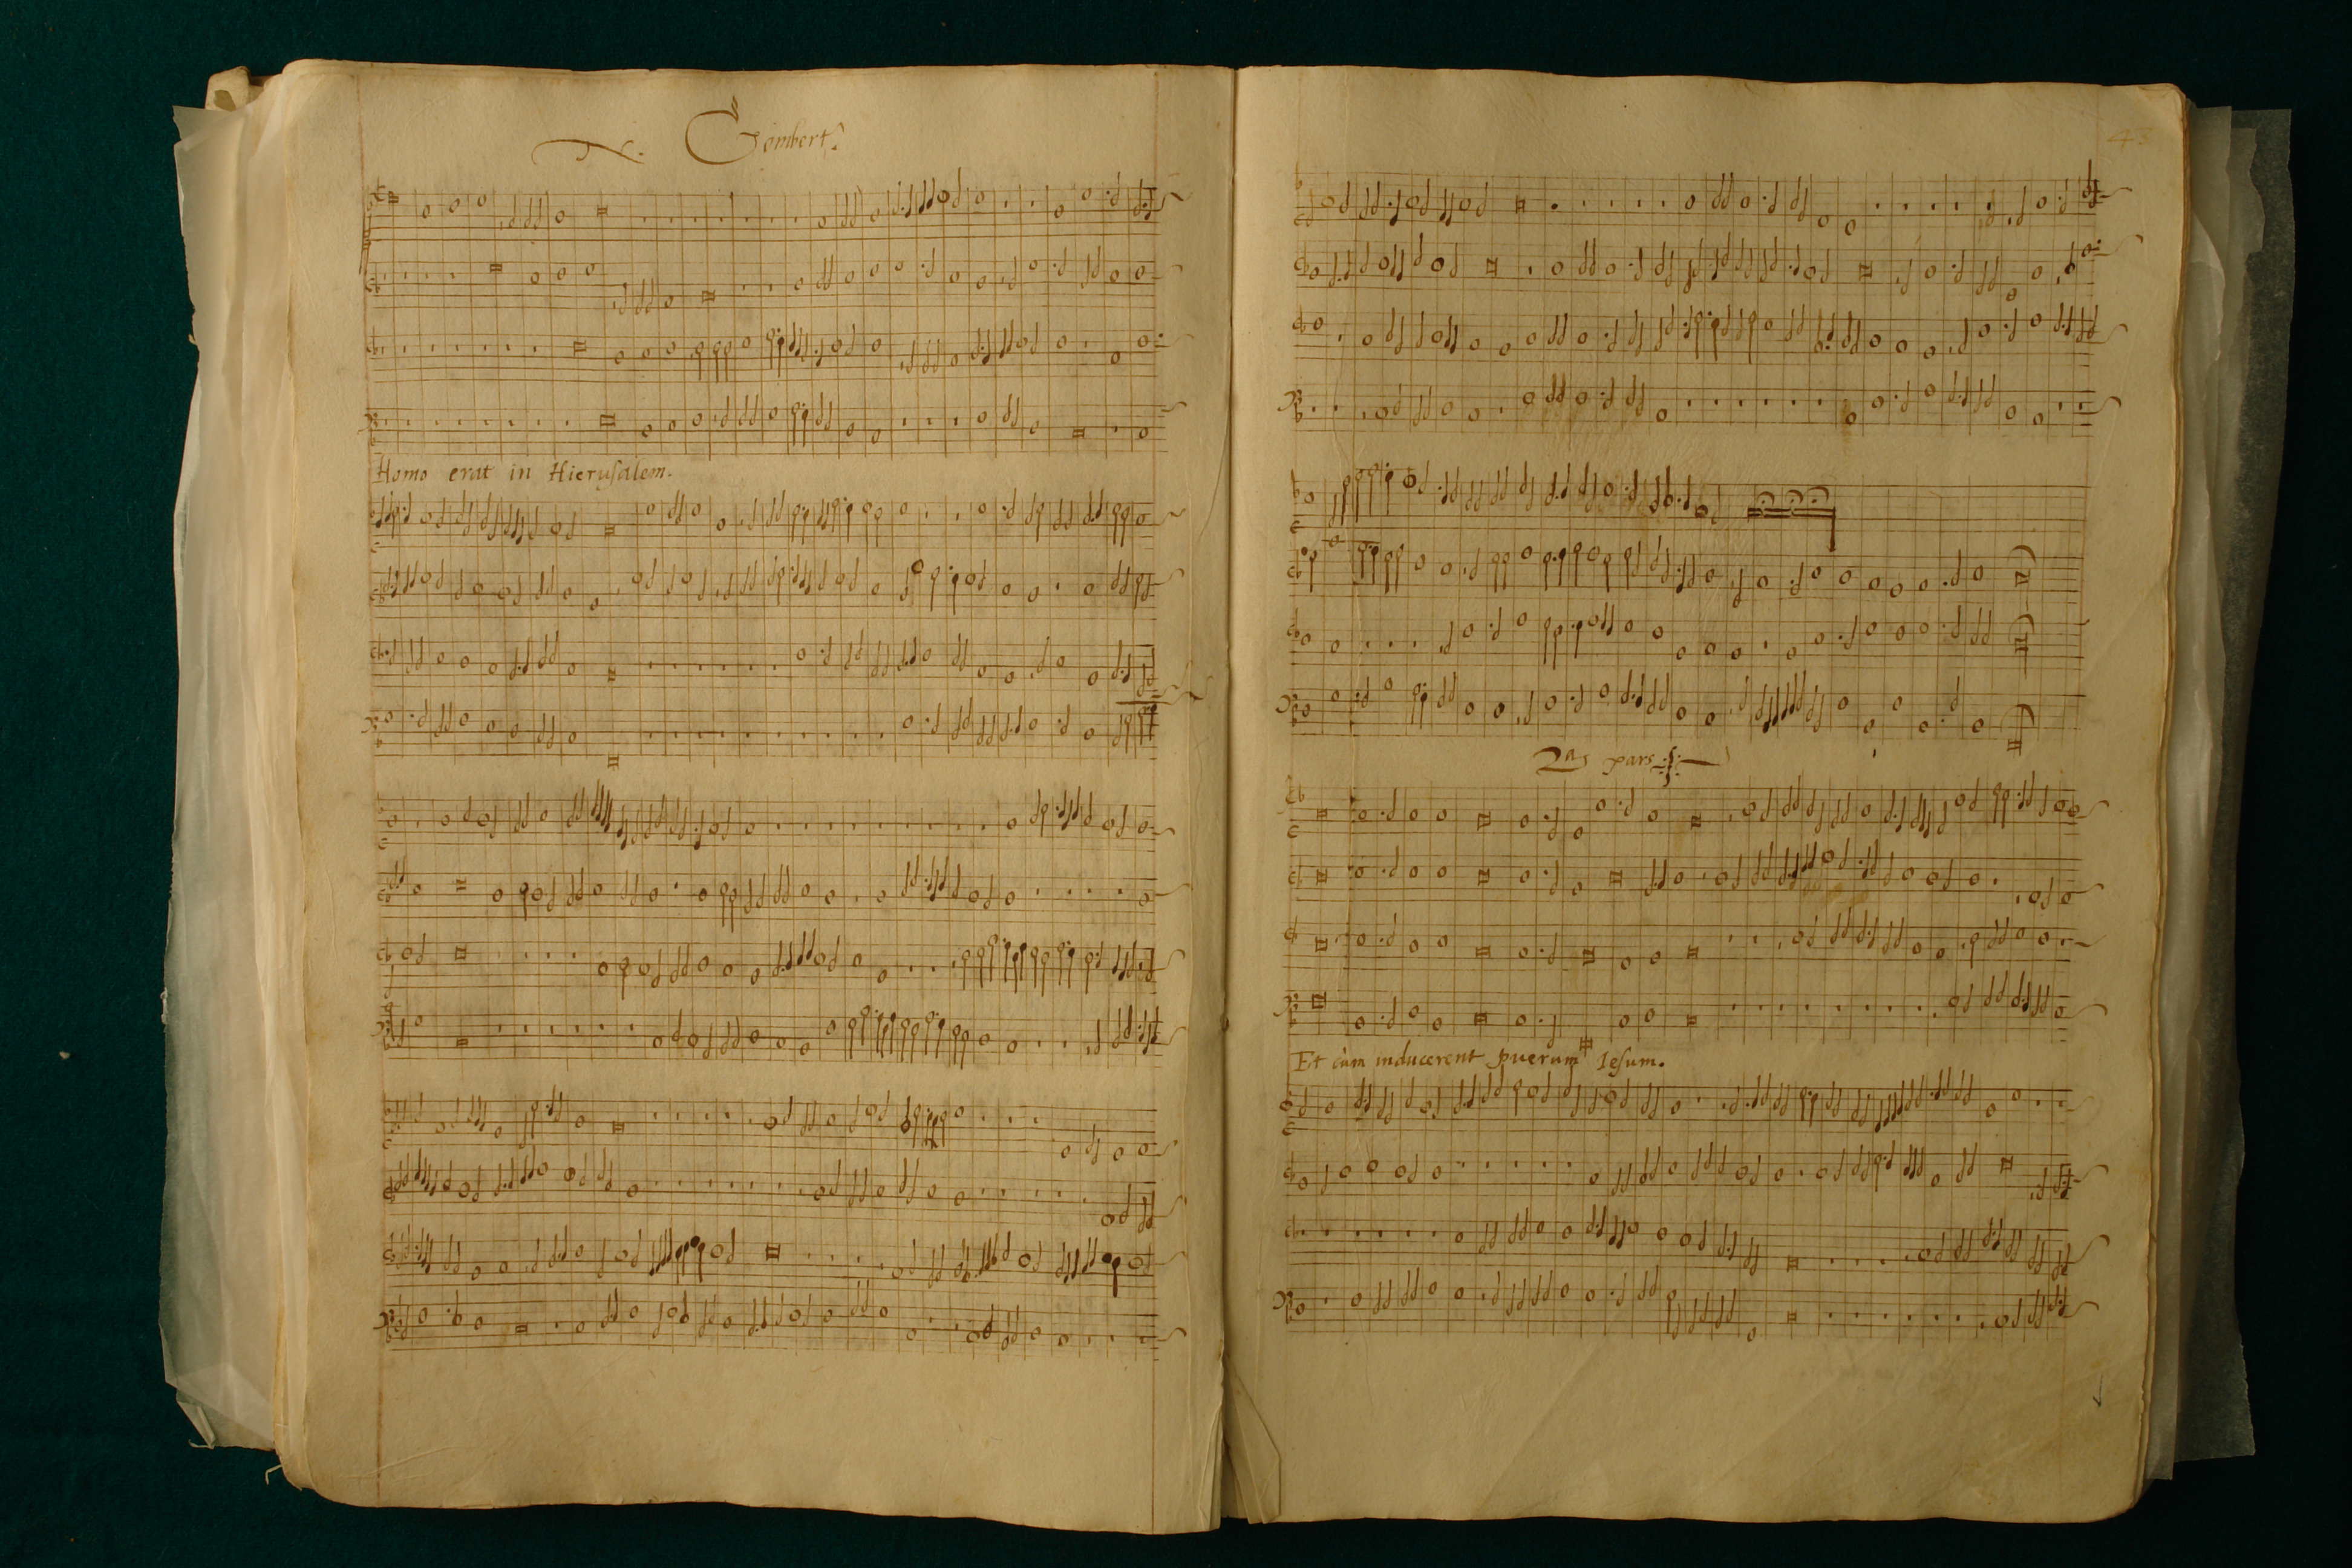 N. Gombert.
Homo erat in Hierusalem.
43
2ª pars
Et cùm inducerent puerum Iesum.